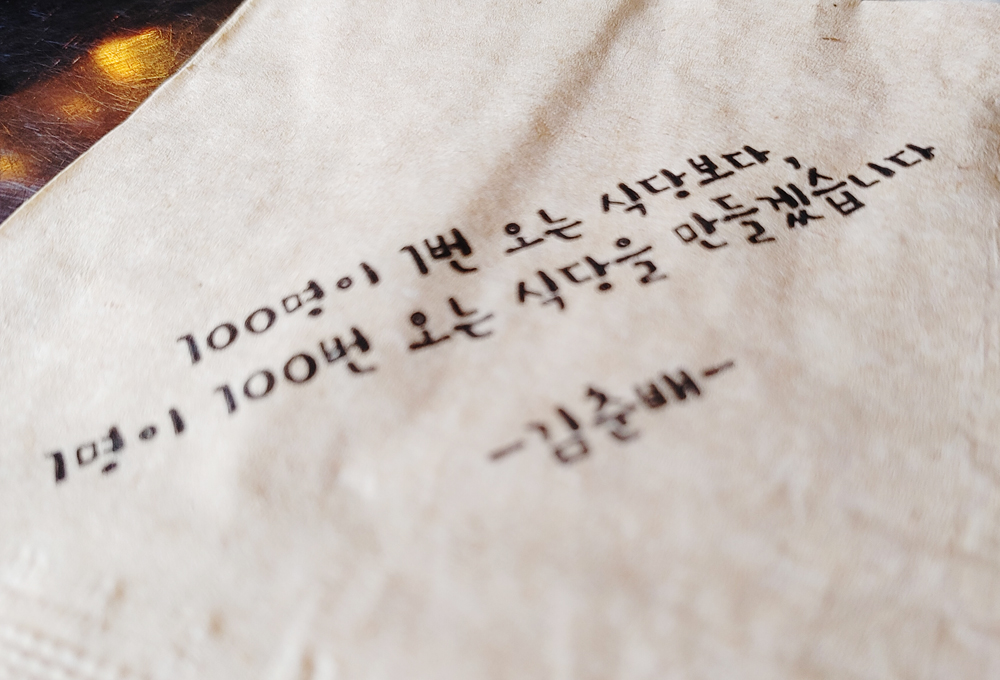 100명이 1번 오는 식당보다,
1명이 100번 오는 식당을 만들겠습니다
-김춘배-